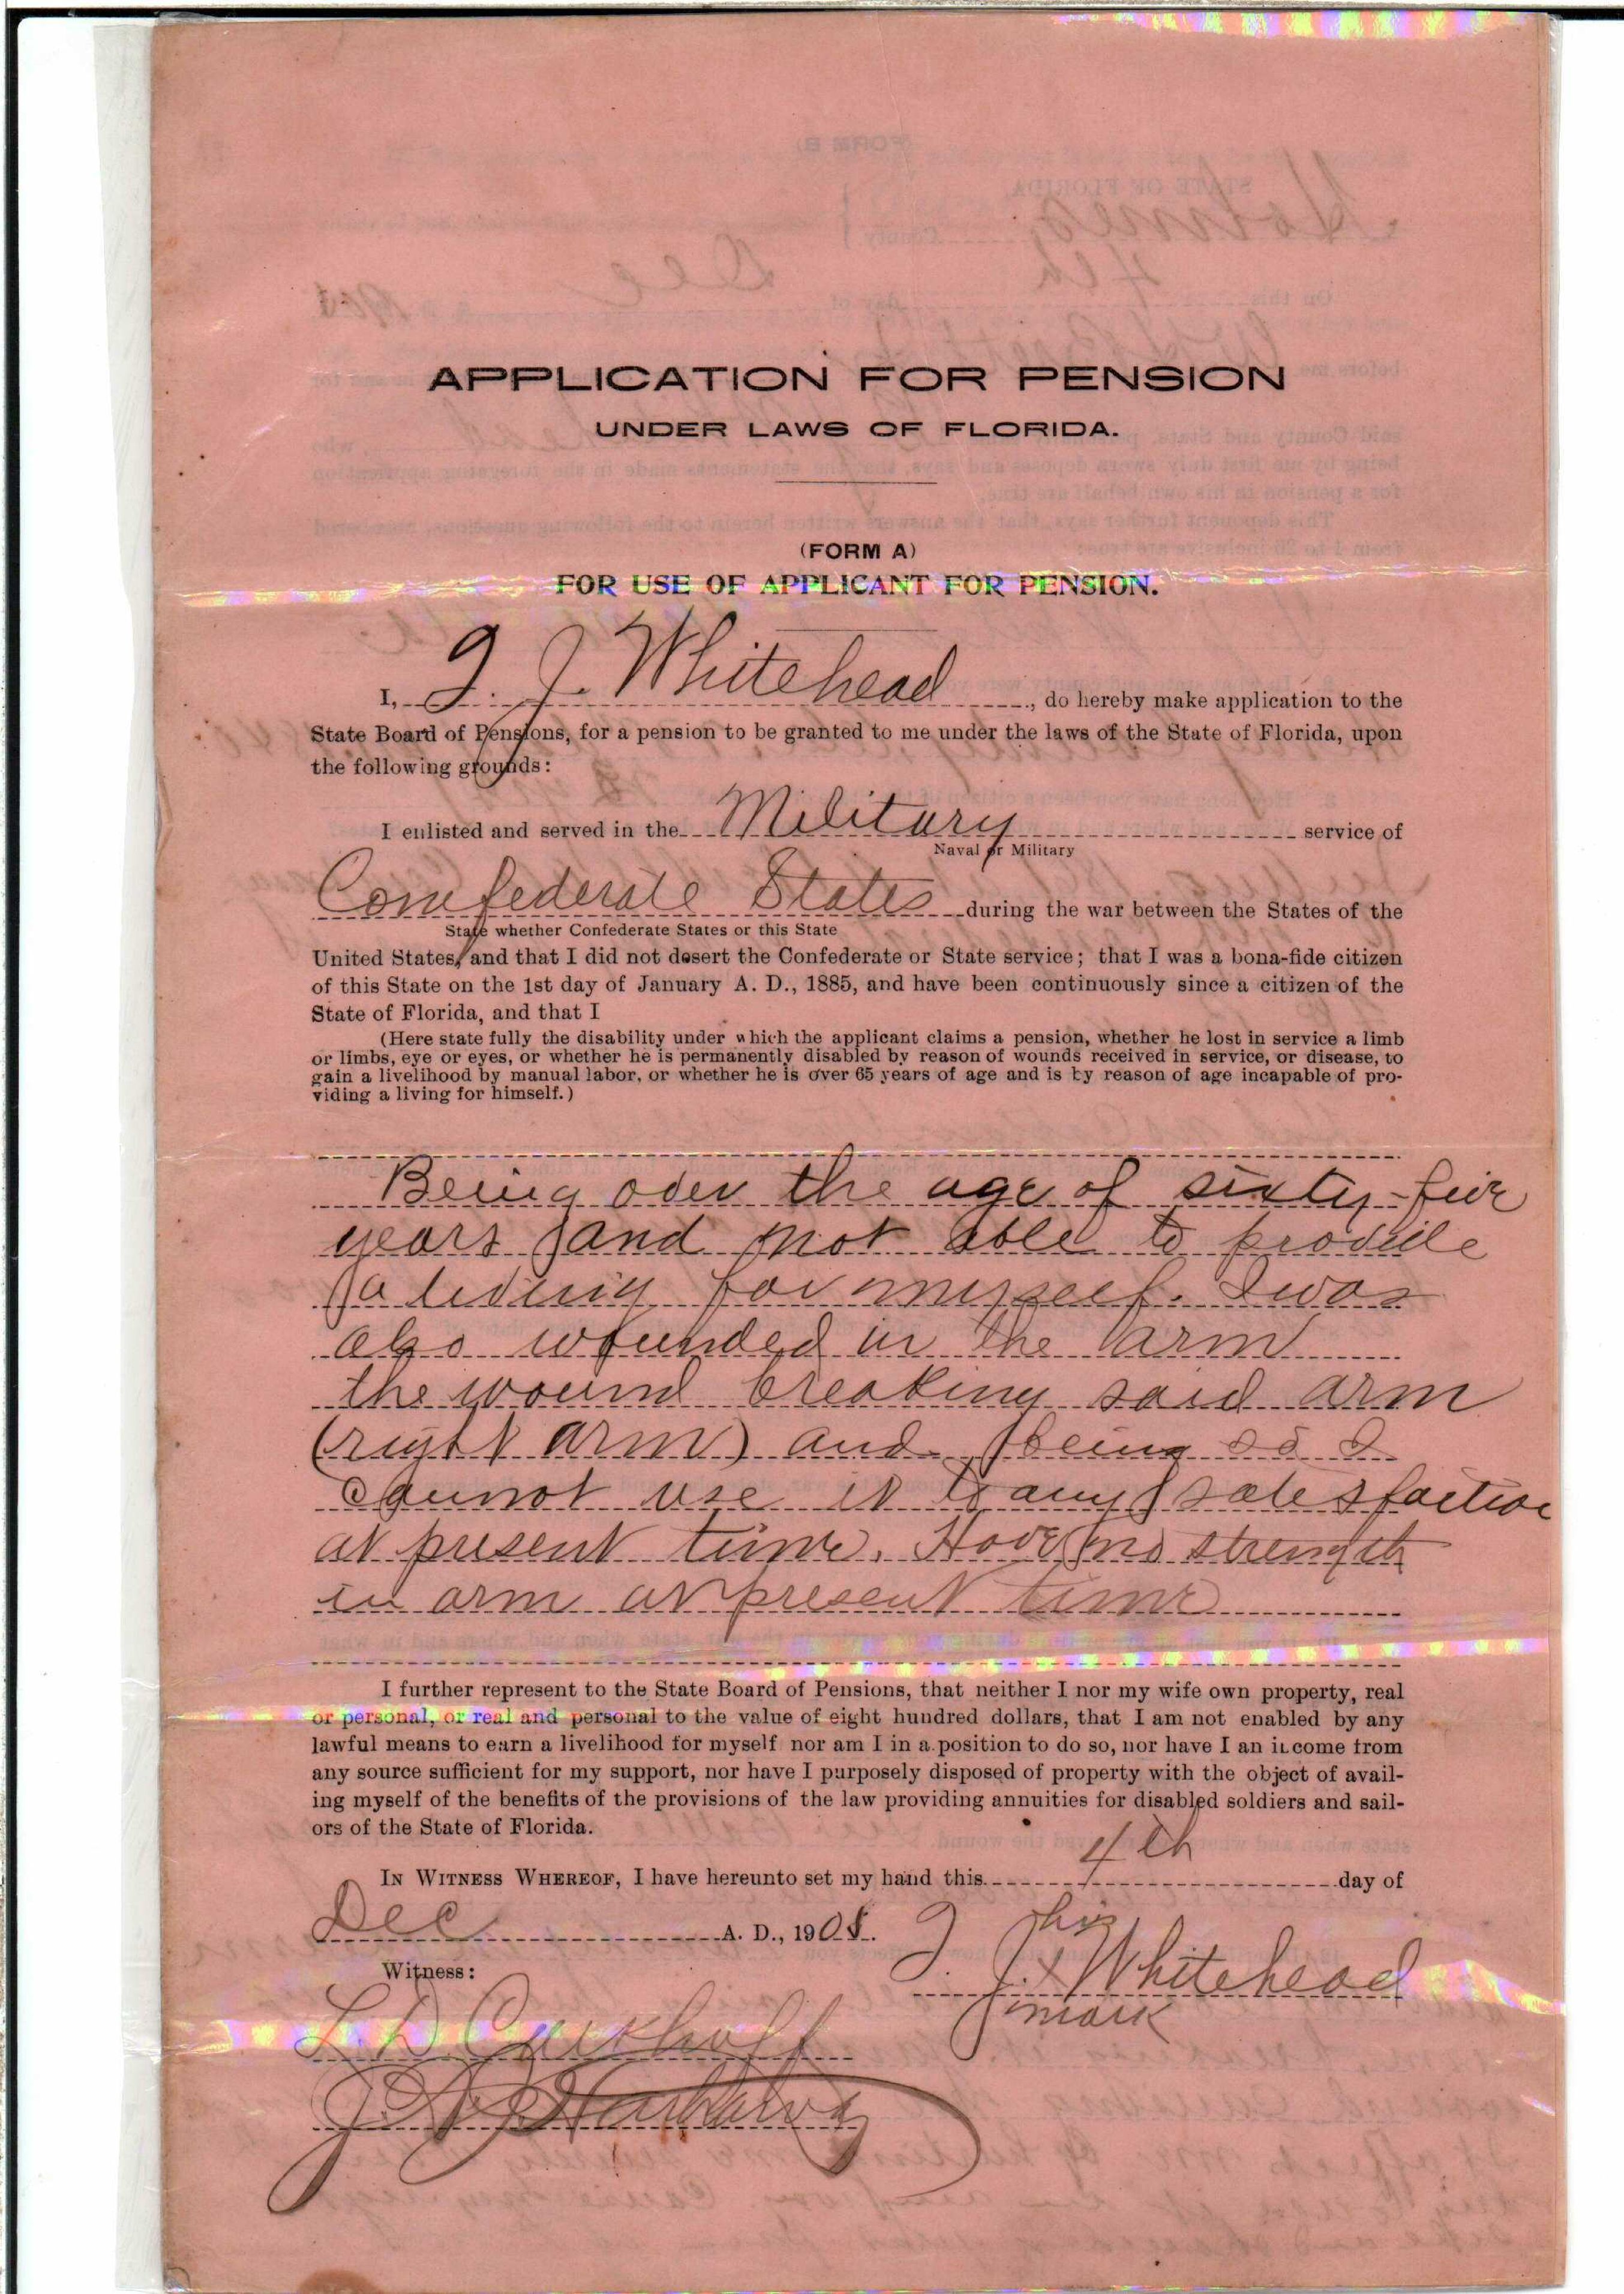 APPLICATION FOR PENSION
UNDER LAWS OF FLORIDA.
(FORM A)
FOR USE OF APPLICANT FOR PENSION.
I, J. J. Whitehead, do hereby make application to the
State Board of Pensions, for a pension to be granted to me under the laws of the State of Florida, upon
the following grounds:
I enlisted and served in the Military service of
Naval or Military
Confederate States during the war between the States of the
State whether Confederate States or this State
United States, and that I did not desert the Confederate or State service; that I was a bona-fide citizen
of this State on the 1st day of January A. D., 1885, and have been continuously since a citizen of the
State of Florida, and that I
(Here state fully the disability under which the applicant claims a pension, whether he lost in service a limb
or limbs, eye or eyes, or whether he is permanently disabled by reason of wounds received in service, or disease, to
gain a livelihood by manual labor, or whether he is over 65 years of age and is by reason of age incapable of pro-
viding a living for himself.)
Being over the age of sixty-five
years and not able to provide
a living for myself. I was
also wounded in the arm
the wound breaking said arm
(right arm) and being so I
cannot use it to any satesfaction
at present time. Have no strength
in arm at present time
I further represent to the State Board of Pensions, that neither I nor my wife own property, real
or personal, or real and personal to the value of eight hundred dollars, that I am not enabled by any
lawful means to earn a livelihood for myself nor am I in a position to do so, nor have I an income from
any source sufficient for my support, nor have I purposely disposed of property with the object of avail-
ing myself of the benefits of the provisions of the law providing annuities for disabled soldiers and sail-
ors of the State of Florida.
IN WITNESS WHEREOF, I have hereunto set my hand this 4th day of
Dec A. D., 1908.
his
J. J. x Whitehead
mark
Witness:
L D